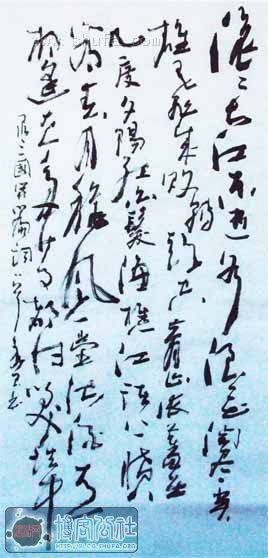 滚々长江东逝水浪花淘尽英
雄是非成败转头空青山依旧在
几度夕阳红白发渔樵江渚上惯
看春月秋风一壶浊酒喜
相逢古今多少事都付笑谈中
录三国开篇词
WWW.SHUFA.ORG